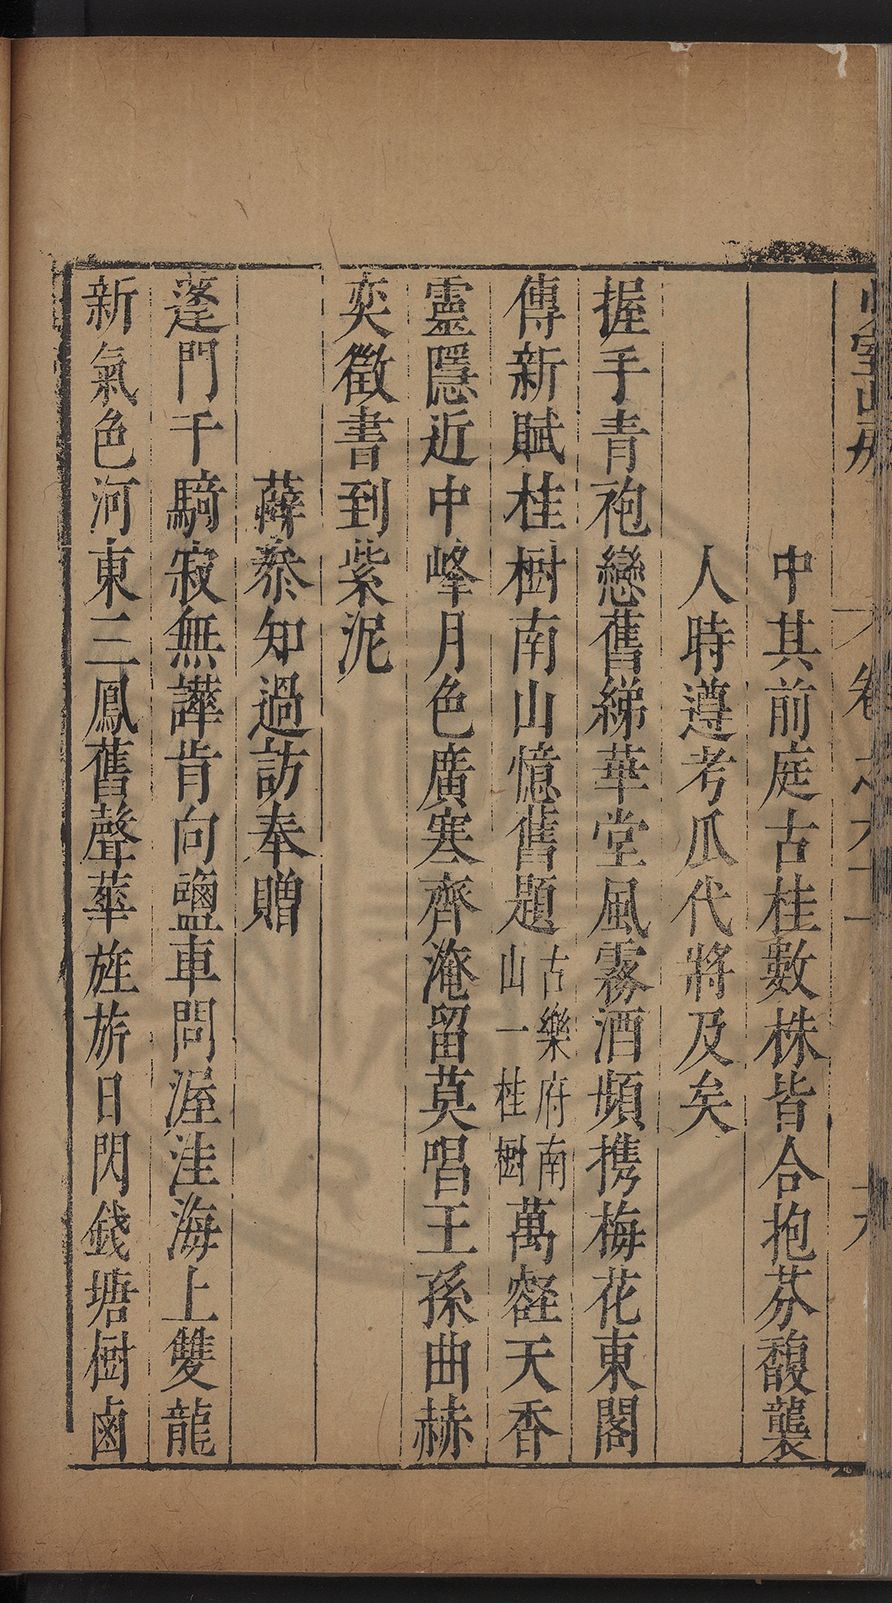 中其前庭古桂數株皆合抱芬馥襲
人時遵考瓜代將及矣
握手青袍戀舊綈華堂風霧酒頻携梅花東閣
傳新賦桂樹南山憶舊題古樂府南山一桂樹萬壑天香
靈隱近中峰月色廣寒齊淹留莫唱王孫曲赫
奕徵書到紫泥
薛泰知過訪奉贈
蓬門千騎寂無譁肯向鹽車問渥洼海上雙龍
新氣色河東三鳳舊聲華旌旂日閃錢塘樹鹵